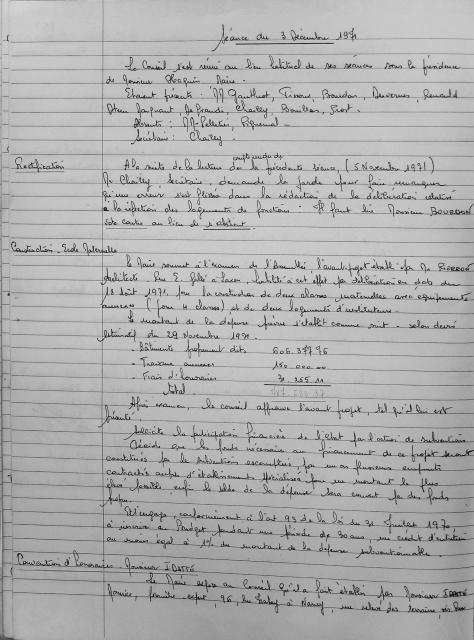 Séance du 3 Décembre 1971
Le Conseil s'est réuni au lieu habituel de ses séances sous la présidence
de Monsieur Maire.
Etaient présents : MM Gauthiot, Bourdon, Renauld
Chailly, Bouillon,
Absents : MM. Pelletier,
Secrétaire : Chailly.
compte rendu de
Rectification
A la suite de la lecture de la précédente séance, (5 Novembre 1971)
M. Chailly Secrétaire, demande la parole pour faire remarquer
qu'une erreur s'est glissée dans la rédaction de la délibération relative
à la réfection des logements de fonctions : Il faut lire Monsieur BOURDON
vote contre au lieu de s'abstient
Construction Ecole Maternelle
Le Maire soumet à l'examen de l'Assemblée l'avant-projet établi par M.
Architecte, habilité à cet effet par délibération en date du
Août 1971, pour la construction de deux classes maternelles avec équipements
annexes (pour 4 classes) et de deux logements d'instituteurs.
Le montant de la dépense prévue s'établit comme suit selon devis
estimatif du 29 Novembre 1971.
- Bâtiments proprement dits
- Travaux annexes 150 000.00
- Frais d'honoraires
Total
Après examen, le conseil approuve l'avant projet, tel qu'il lui est
présenté.
Sollicite la participation financière de l'état par l'octroi de subvention
Décide que les fonds nécessaires au financement de ce projet seront
constitués par la subvention escomptée, par un ou plusieurs emprunts
contractés auprès d'établissements spécialisés pour un montant le plus
élevé possible, enfin le solde de la dépense sera couvert par des fonds
propres.
S'engage, conformément à l'art 93 de la loi du 31 Juillet 1970,
à inscrire au Budget, pendant une période de 30 ans, un crédit d'entretien
au moins égal à 1% du montant de la dépense subventionnable.
Convention d'honoraires - Monsieur
Le Maire expose au Conseil qu'il a fait établir par Monsieur
expert, à Nancy, un relevé des terrains